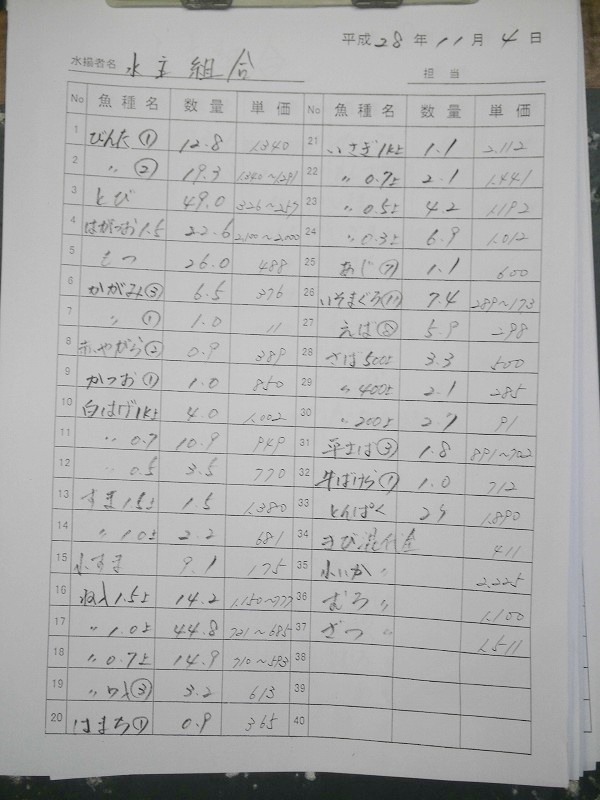 平成 28 年 11 月 4 日
水揚者名 水主組合 担当
No 魚種名 数量 単価 No 魚種名 数量 単価
1 びんた① 12.8 1.340 21 いさぎ1kよ 1.1 2.112
2 〃 ② 19.3 1.340~1.291 22 〃 0.7よ 2.1 1.441
3 とび 49.0 326~257 23 〃 0.5よ 4.2 1.192
4 はがつお1.5 22.6 2.100~2.000 24 〃 0.3よ 6.9 1.012
5 もつ 26.0 488 25 あじ⑦ 1.1 600
6 かがみ③ 6.5 376 26 いそまぐろ⑪ 7.4 289~173
7 〃 ① 1.0 11 27 えば 5.9 298
8 赤やがら② 0.9 389 28 さば500よ 3.3 500
9 かつお① 1.0 850 29 〃 400よ 2.1 285
10 白はげ1kよ 4.0 1.002 30 〃 200よ 2.7 91
11 〃 0.7 10.9 949 31 平さば③ 1.8 891~702
12 〃 0.5 3.5 770 32 牛ばけら① 1.0 712
13 すま1.5よ 1.5 1.380 33 とんぱく 1.890
14 〃 1.0よ 2.2 681 34 混代金 411
15 小すま 9.1 175 35 小いか 〃 2.225
16 1.5よ 14.2 1.150~777 36 むろ 〃 1.100
17 〃 1.0よ 44.8 721~685 37 ざつ 〃 1.511
18 〃 0.7よ 14.9 710~593 38
19 〃 ③ 3.2 613 39
20 はまち① 0.9 365 40